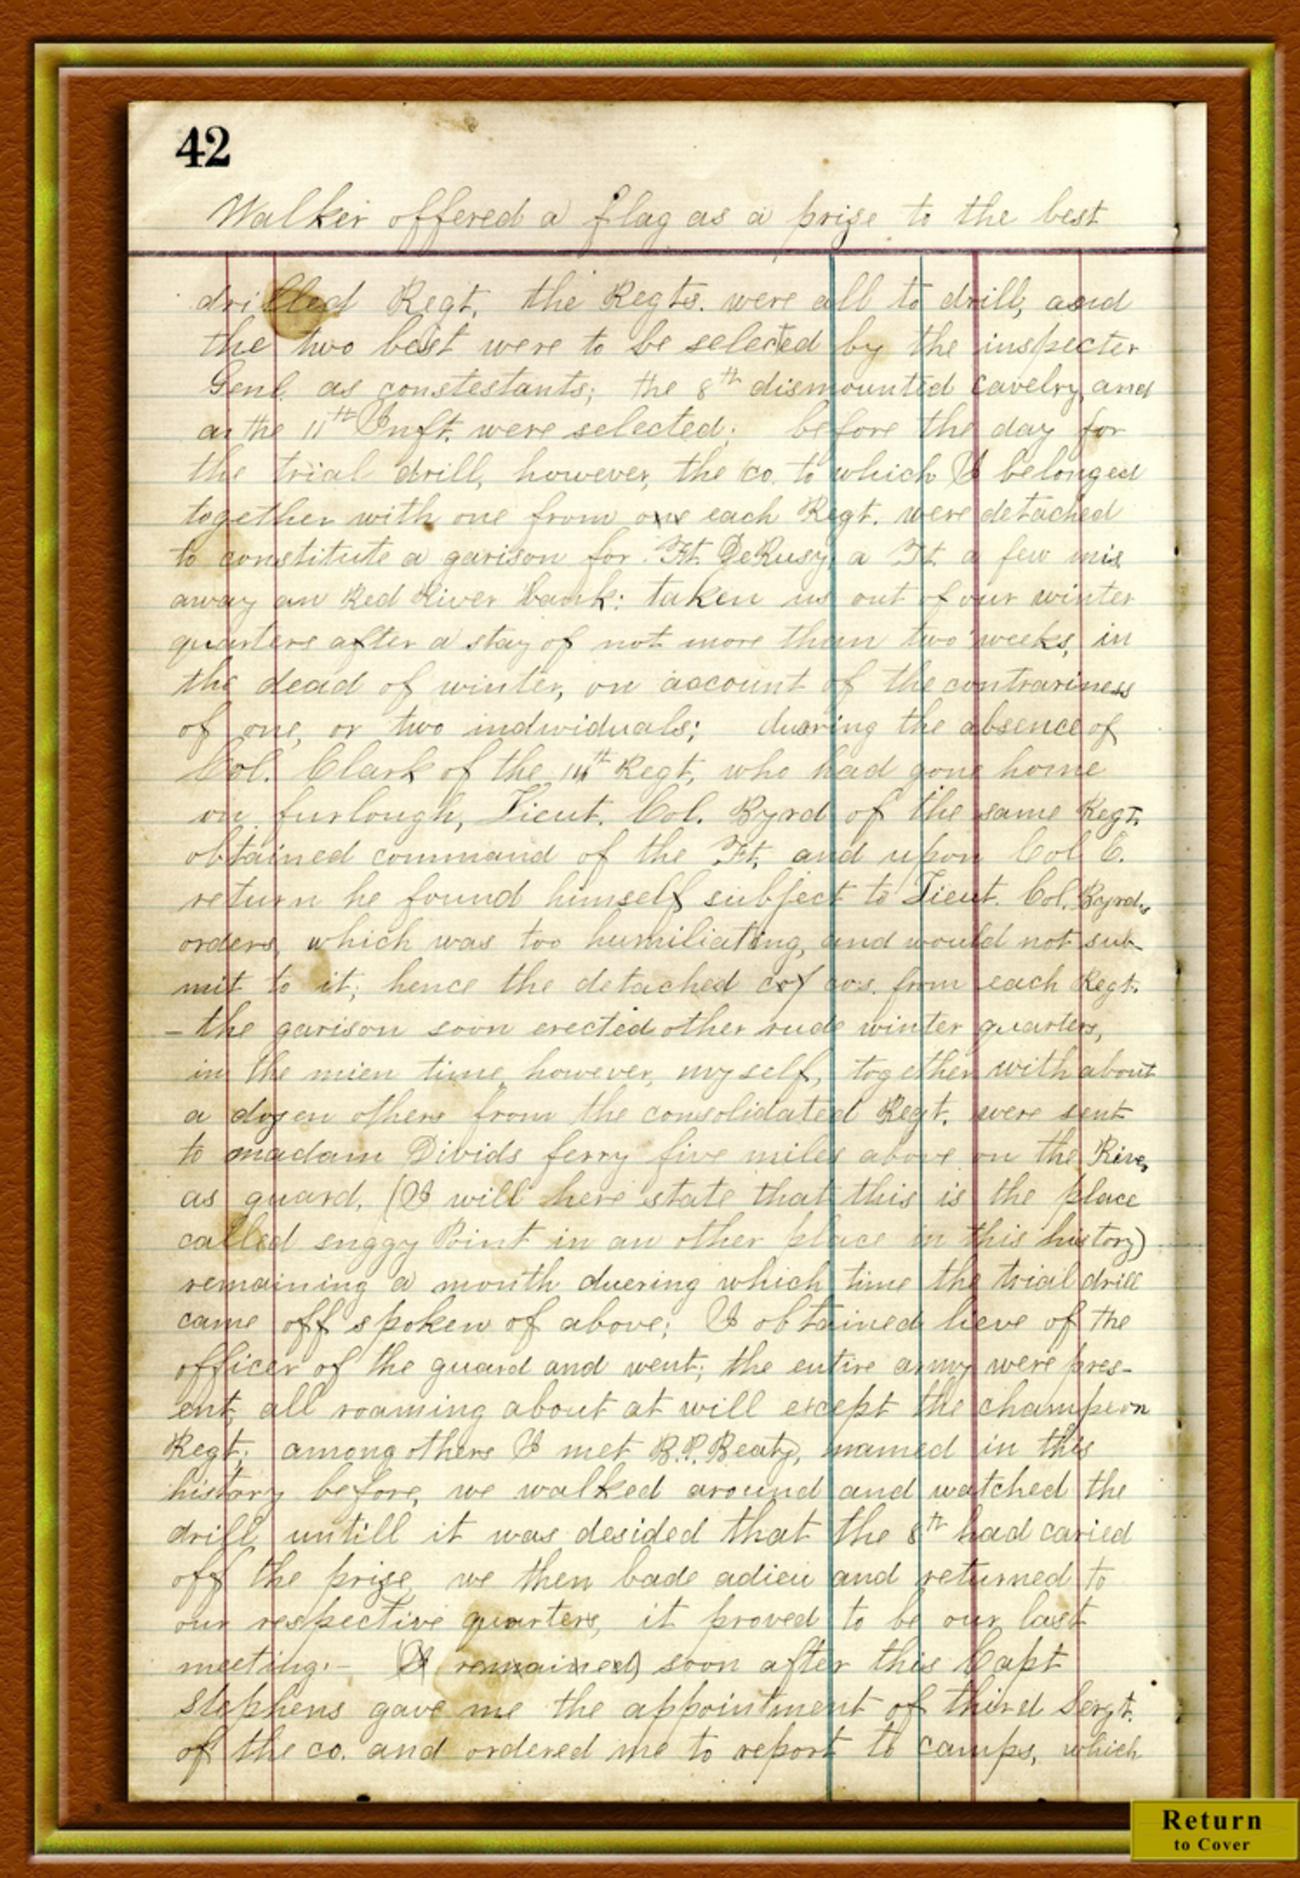 42
Walker offered a flag as a prize to the best
drilled Regt, the Regts. were all to drill, and
the two best were to be selected by the inspecter
Genl. as constestants; the 8th dismounted cavelry, and
the 11th Inft. were selected; before the day for
the trial drill, however, the co. to which I belonged
together with one from each Regt. were detached
to constitute a garison for Ft. DeRusy, a Ft. a few mis
away an Red River bank: taken us out of our winter
quarters after a stay of not more than two weeks, in
the dead of winter, on account of the contrariness
of one, or two individuals; duering the absence of
Col. Clark of the 14th Regt, who had gone home
on furlough, Lieut. Col. Byrd of the same Regt.
obtained command of the Ft, and upon Col C.
return he found himself subject to Lieut. Col. Byrds
orders, which was too humiliating, and would not sub-
mit to it; hence the detached cos. from each Regt.
- the garison soon erected other rude winter quarters,
in the mien time, however, myself, together with about
a dozen others from the consolidated Regt. were sent
to madam Divids ferry five miles above on the River,
as guard, (I will here state that this is the place
called snggy Point in an other place in this history)
remaining a month duering which time the trial drill
came off spoken of above; I obtained lieve of the
officer of the guard and went; the entire army were pres-
ent, all roaming about at will except the champion
Regt; among others I met B.P. Beaty, named in this
history before, we walked around and watched the
drill untill it was desided that the 8th had caried
off the prize, we then bade adieu and returned to
our respective quarters, it proved to be our last
meeting.- (I remained) soon after this Capt
Stephens gave me the appointment of third Sergt.
of the co. and ordered me to report to camps, which
Return
to Cover